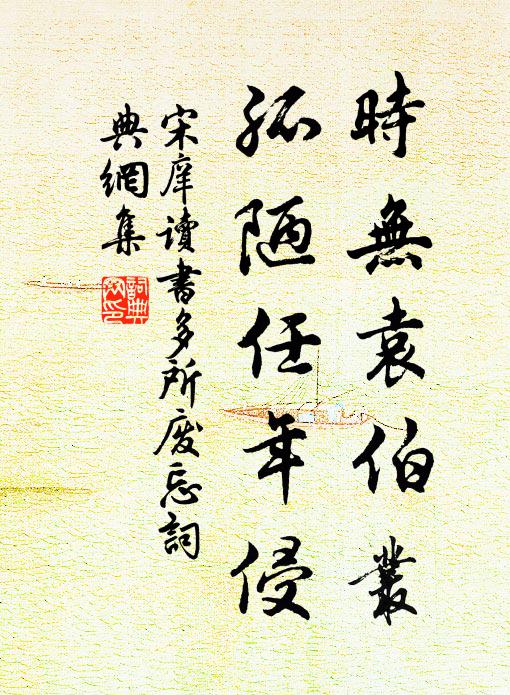 時無袁伯叢
孤陋任年侵
宋庠讀書多所廢忘詞
典網集
詞典網印